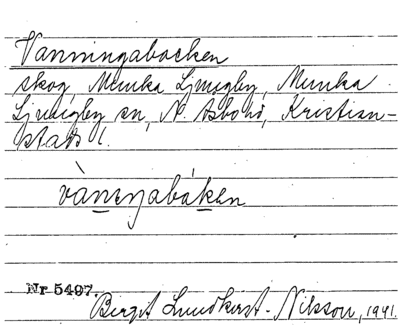 Vanningabacken
skog, Munka Ljungby, Munka
Ljungby sn, N. Åsbo hd, Kristian-
stads l.
vàneŋabáken
Nr 5497.
Birgit Lundkvist-Nilsson, 1941.